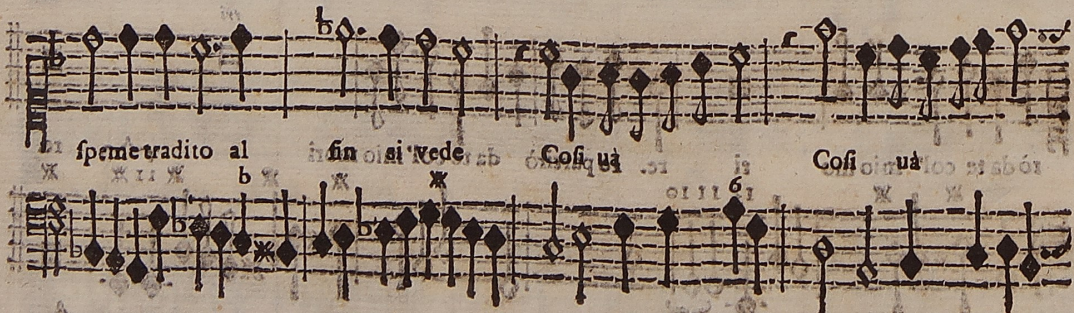 ſpeme tradito al fin si vede Coſi uà Coſi uà
b 6